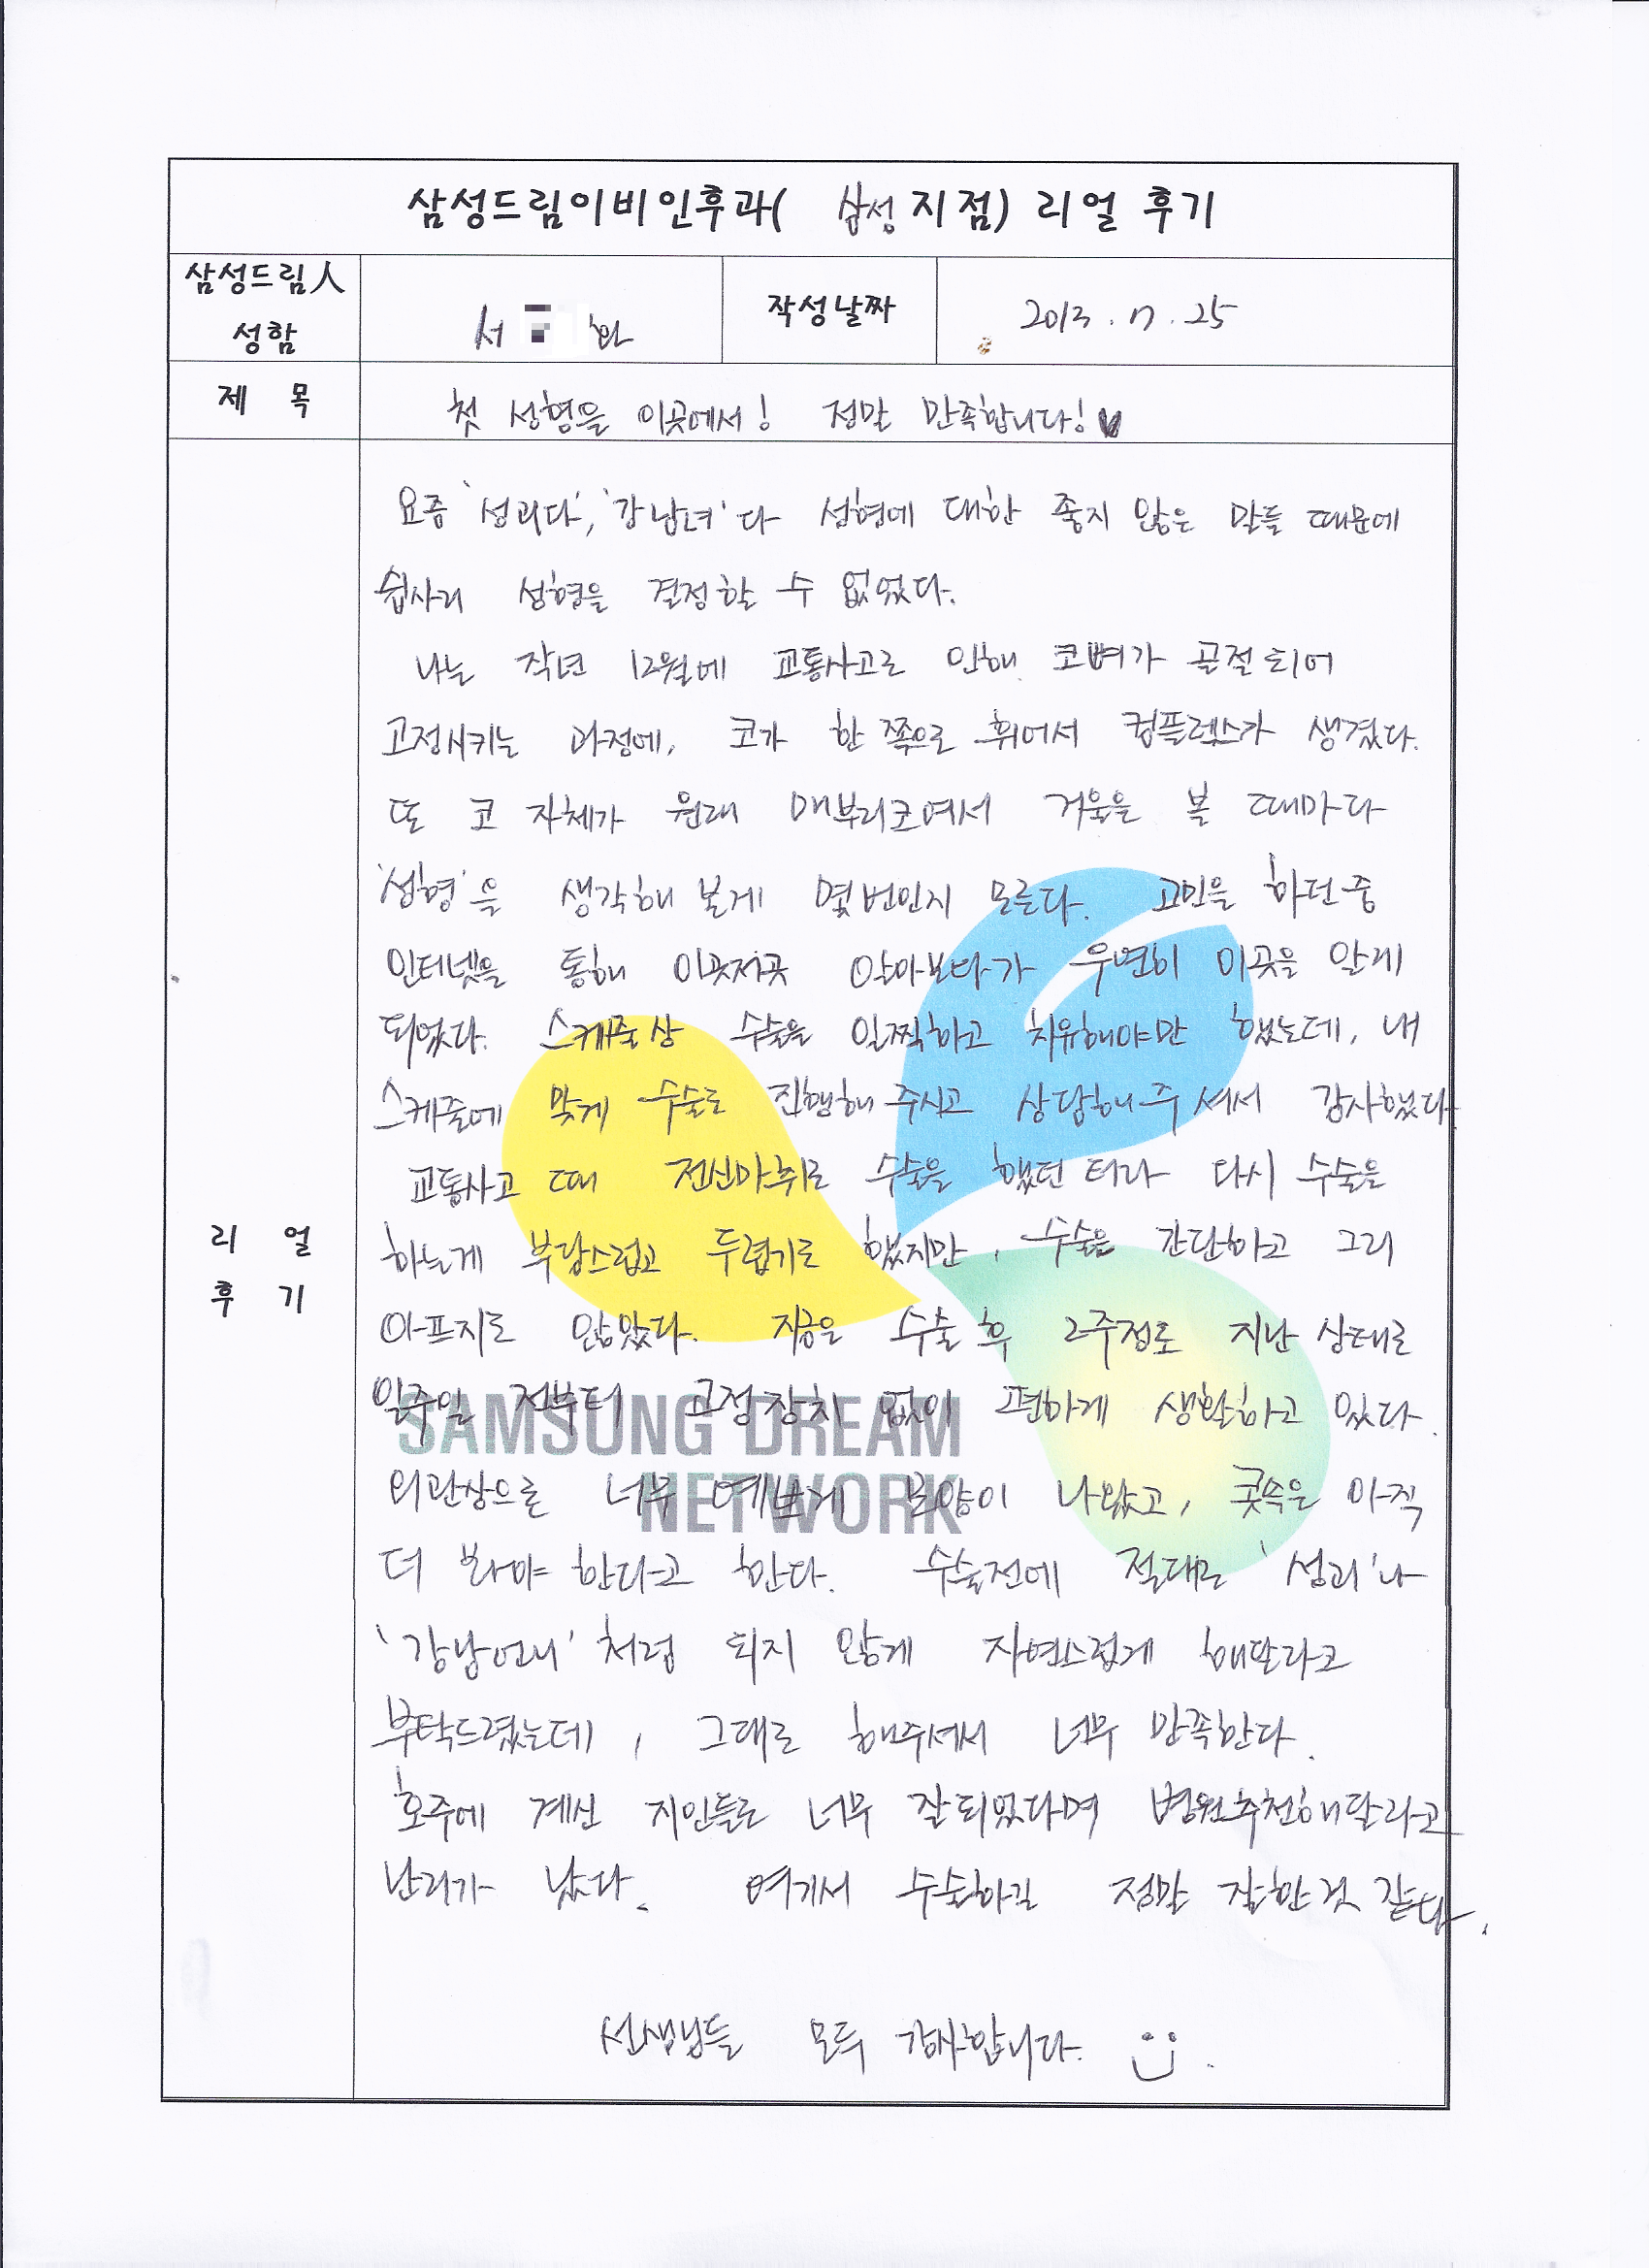 삼성드림이비인후과( 삼성 지점) 리얼 후기
삼성드림人 성함
서 환
작성날짜
2013. 17. 25
제 목
첫 성형을 이곳에서! 정말 만족합니다!♥
리 얼 후 기
요즘 '성괴다', '강남녀'다 성형에 대한 좋지 않은 말들 때문에
쉽사리 성형을 결정할 수 없었다.
나는 작년 12월에 교통사고로 인해 코뼈가 골절되어
고정시키는 과정에, 코가 한 쪽으로 휘어서 컴플렉스가 생겼다.
또 코 자체가 원래 매부리코여서 거울을 볼 때마다
'성형'을 생각해 본게 몇 번인지 모른다. 고민을 하던 중
인터넷을 통해 이곳저곳 알아보다가 우연히 이곳을 알게
되었다. 스케줄상 수술을 일찍하고 치유해야만 했는데, 내
스케줄에 맞게 수술도 진행해 주시고 상담해주셔서 감사했다
교통사고 때 전신마취로 수술을 했던 터라 다시 수술을
하는게 부담스럽고 두렵기도 했지만, 수술은 간단하고 그리
아프지도 않았다. 지금은 수술 후 2주정도 지난 상태로
일주일 전부터 고정장치 없이 편하게 생활하고 있다.
외관상으론 너무 예쁘게 모양이 나왔고, 콧속은 아직
더 봐야 한다고 한다. 수술전에 절대로 '성괴'나
'강남언니'처럼 되지 않게 자연스럽게 해달라고
부탁드렸는데, 그대로 해주셔서 너무 만족한다.
호주에 계신 지인들도 너무 잘되었다며 병원추천해달라고
난리가 났다. 여기서 수술하길 정말 잘한것 같다.
선생님들 모두 감사합니다.
SAMSUNG DREAM
NETWORK